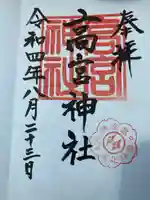 奉拝
高宮神社
令和四年八月二十三日